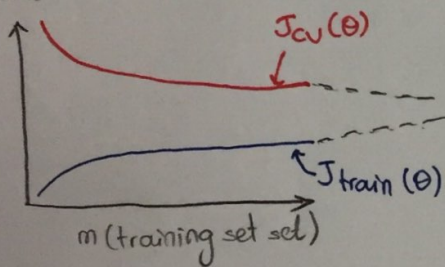 Jcv(θ)
Jtrain(θ)
m (training set set)